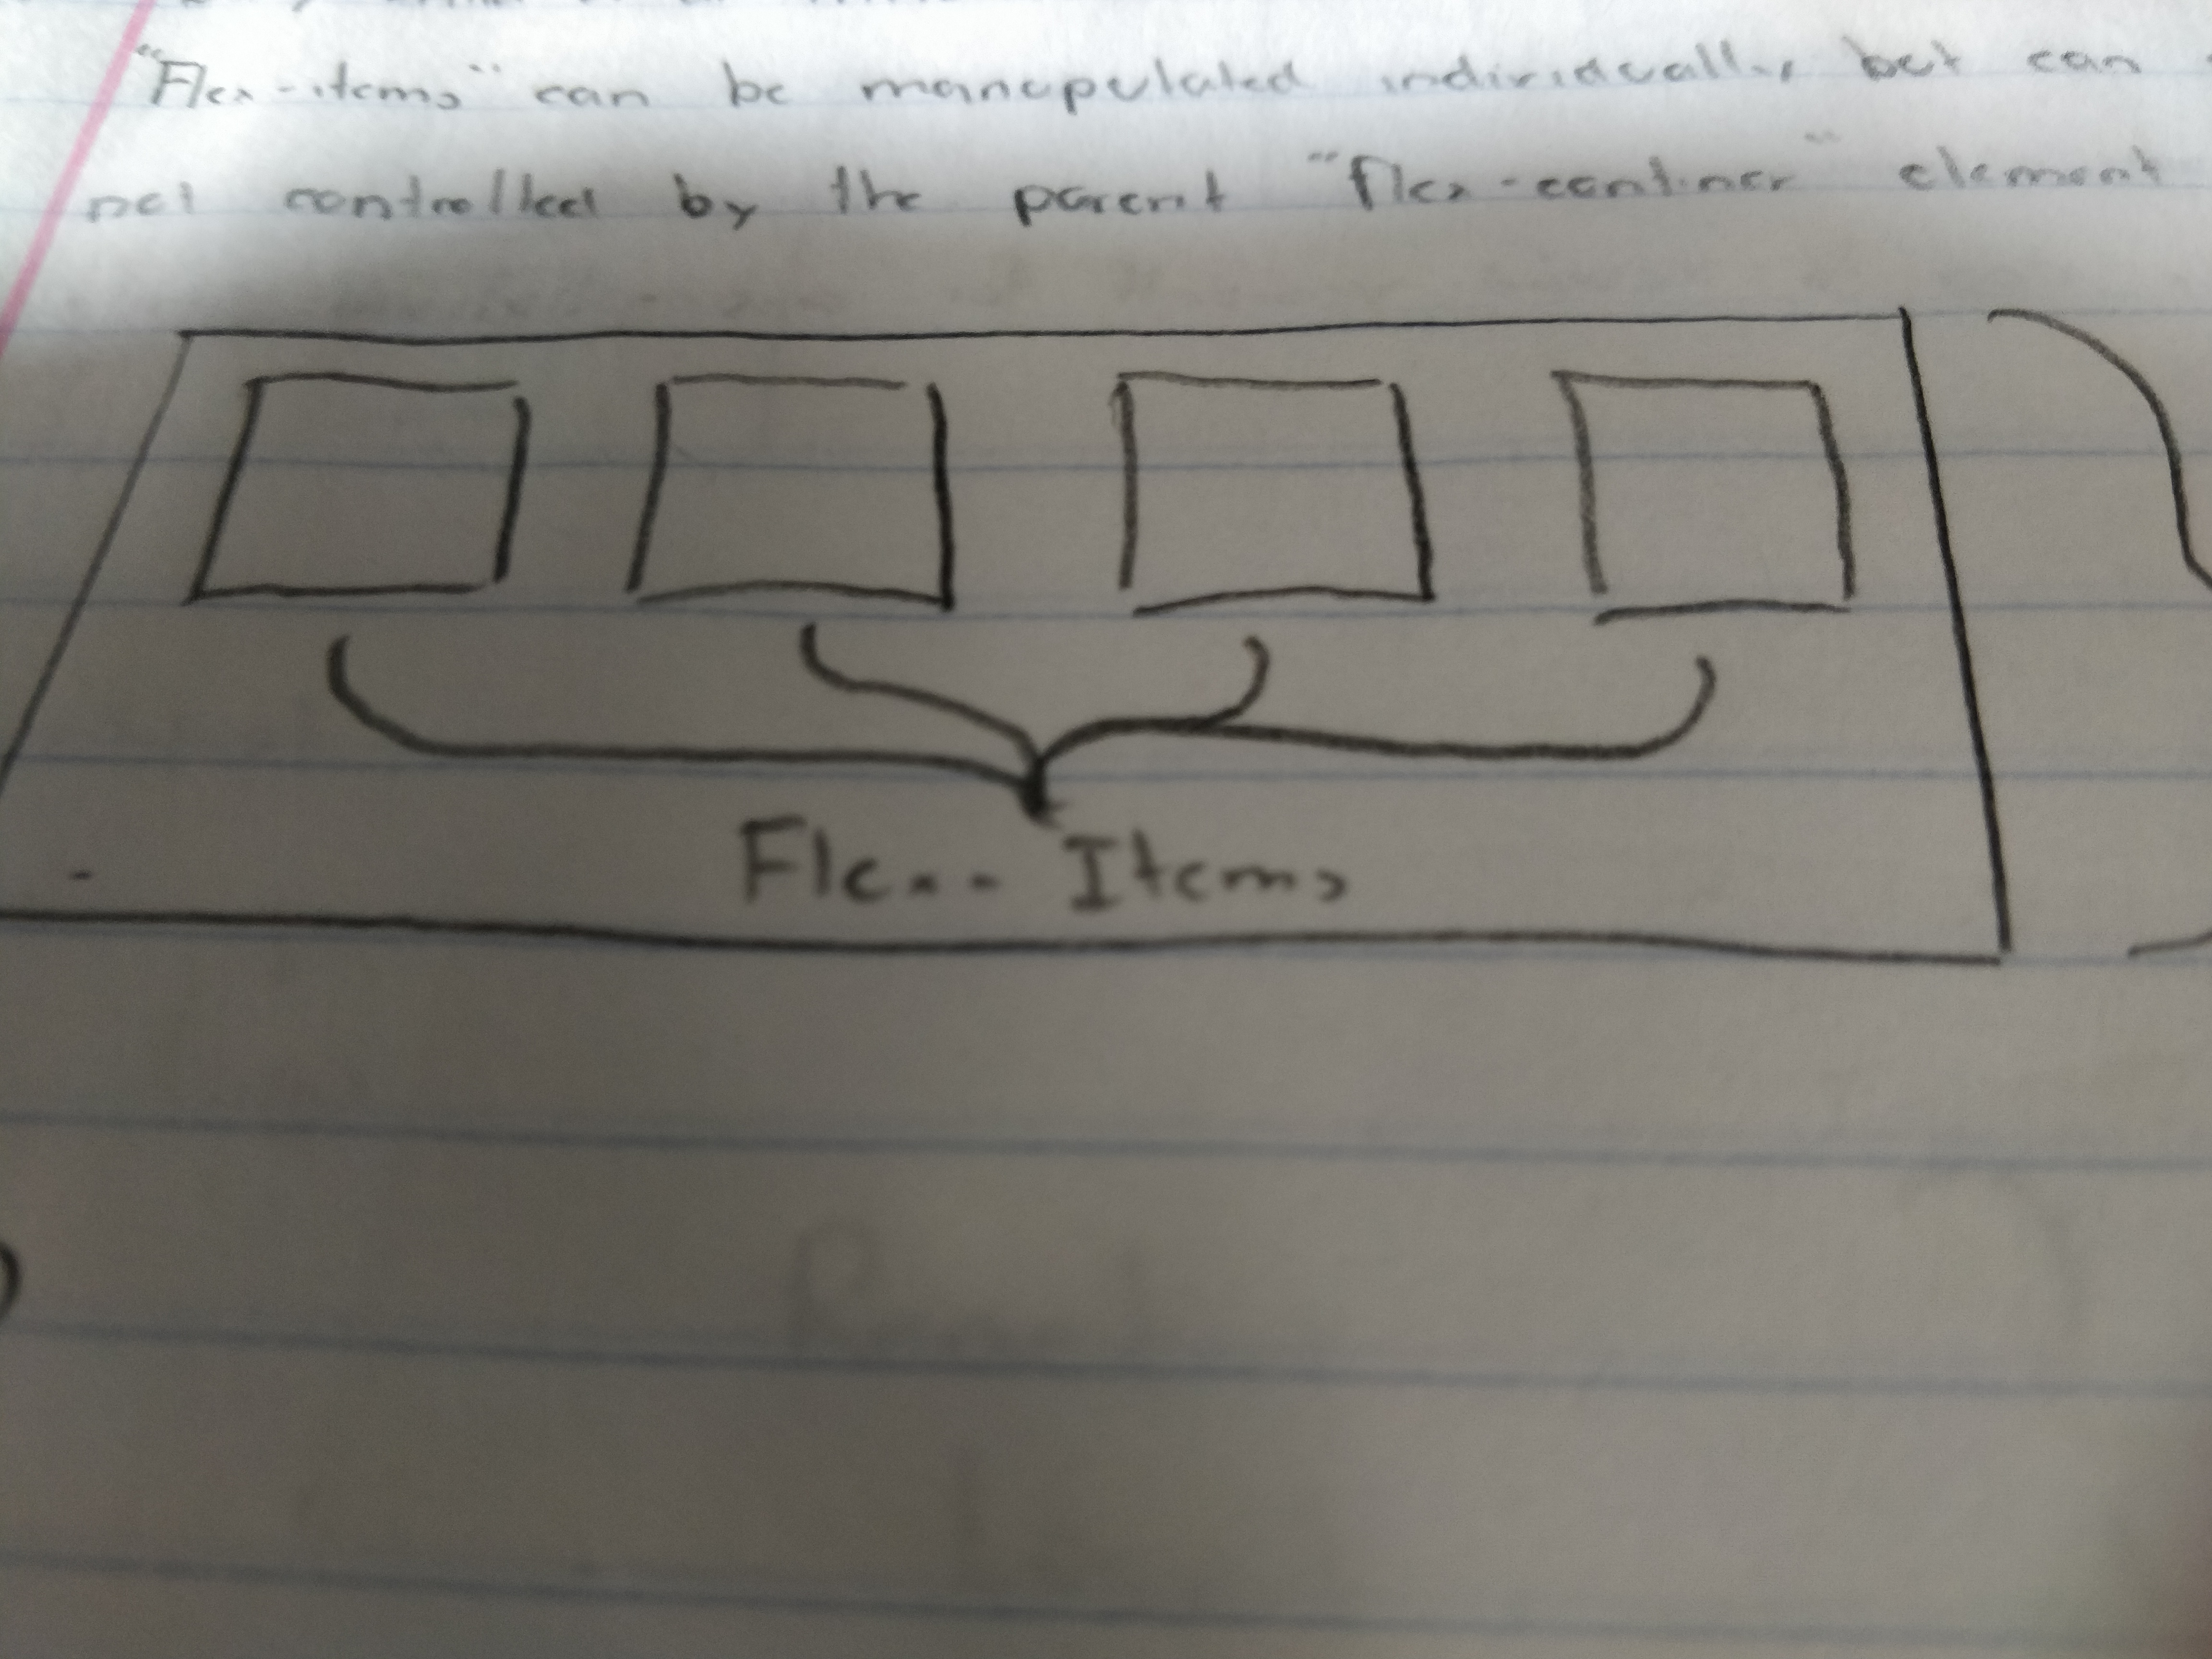 "Flex-items" can be manepulated individually, but can
not controlled by the parent "flex-continer" element
Flex-Items